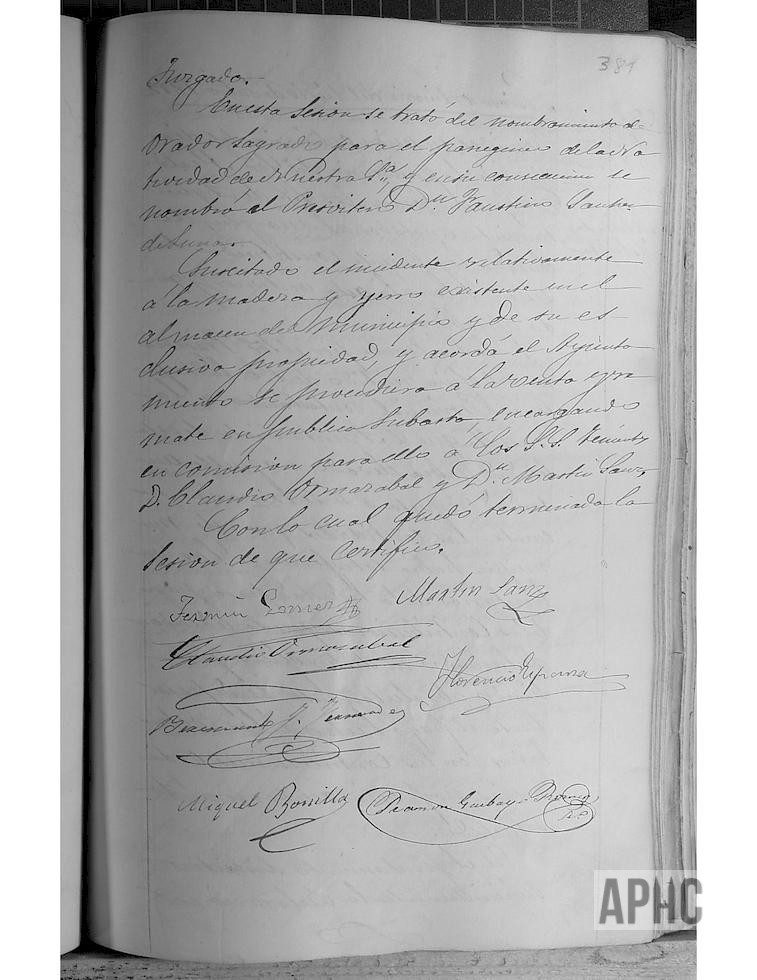 381
Jurgado.
En esta Sesion se trató del nombramiento de
Orador Sagrado para el panegirico de la Na
tividad de Nuestra Sª, y en su consecuencia se
nombró al Presvitero Dn Faustino Sanchez
de Luna.
Suscitado el incidente relativamente
á la madera y yerro existente en el
almacen del Municipio y de su es
clusiva propiedad, y acordó el Ayunta
miento se procediera á la venta y re
mate en publica Subasta, encargando
en comision para ello á los S.S. Tenientes
D. Claudio Ormazabal y Dn Martin Sanz,
Con lo cual quedó terminada la
Sesion de que Certifico.
Fermin
Martin Sanz
Claudio Ormazabal
Florencio Esparza
Miguel Bonilla
Ramon
APHC